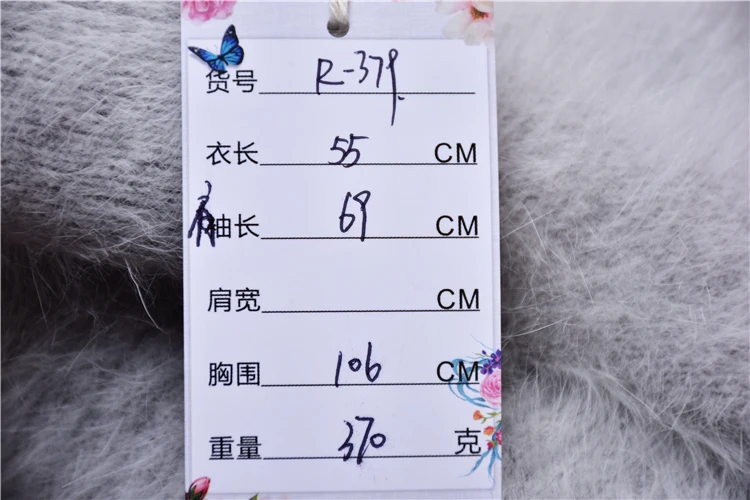 货号 R-379
衣长 55 CM
肩袖长 69 CM
肩宽 CM
胸围 106 CM
重量 370 克